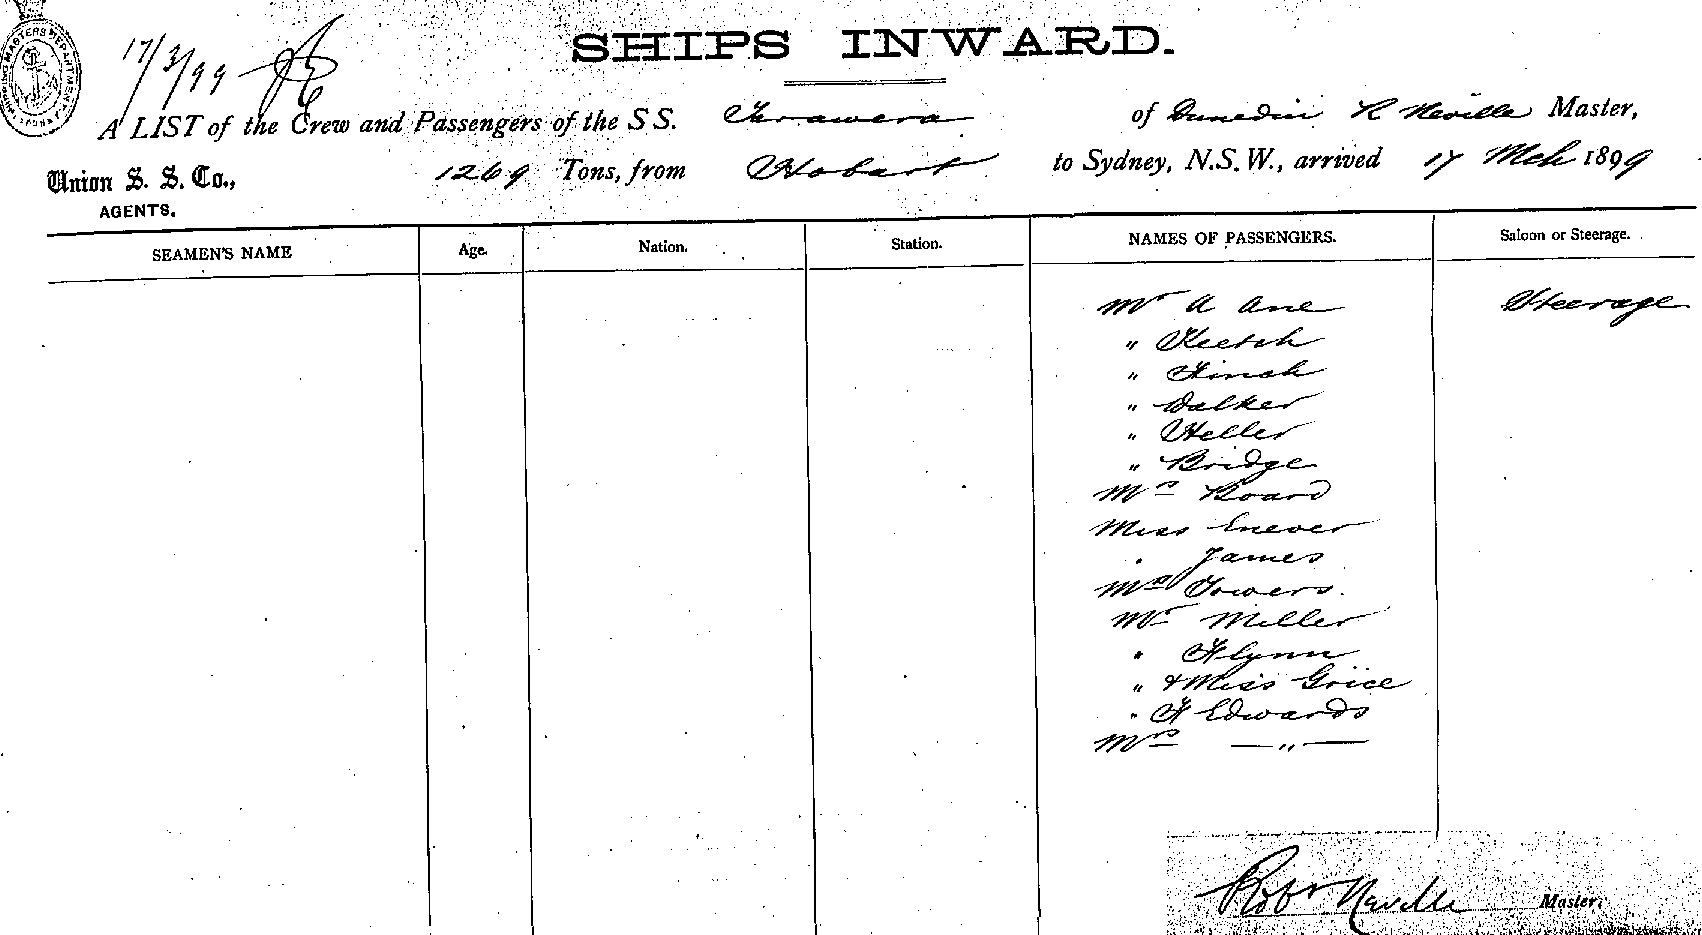 17/3/99
SHIPS INWARD.
A LIST of the Crew and Passengers of the S S. Tarawera of Dunedin R Neville Master,
Union S. S. Co., 1269 Tons, from Hobart to Sydney, N.S.W., arrived 17 Mch 1899
AGENTS.
SEAMEN'S NAME Age. Nation. Station. NAMES OF PASSENGERS. Saloon or Steerage.
Mr A Ane Steerage
" Keetch
" Finch
" Walker
" Heller
" Bridge
Mrs Board
Miss Enever
" James
Mrs Towers.
Mr Miller
" Flynn
" & Miss Grice
" F Edwards
Mrs — " —
Robt Neville Master.